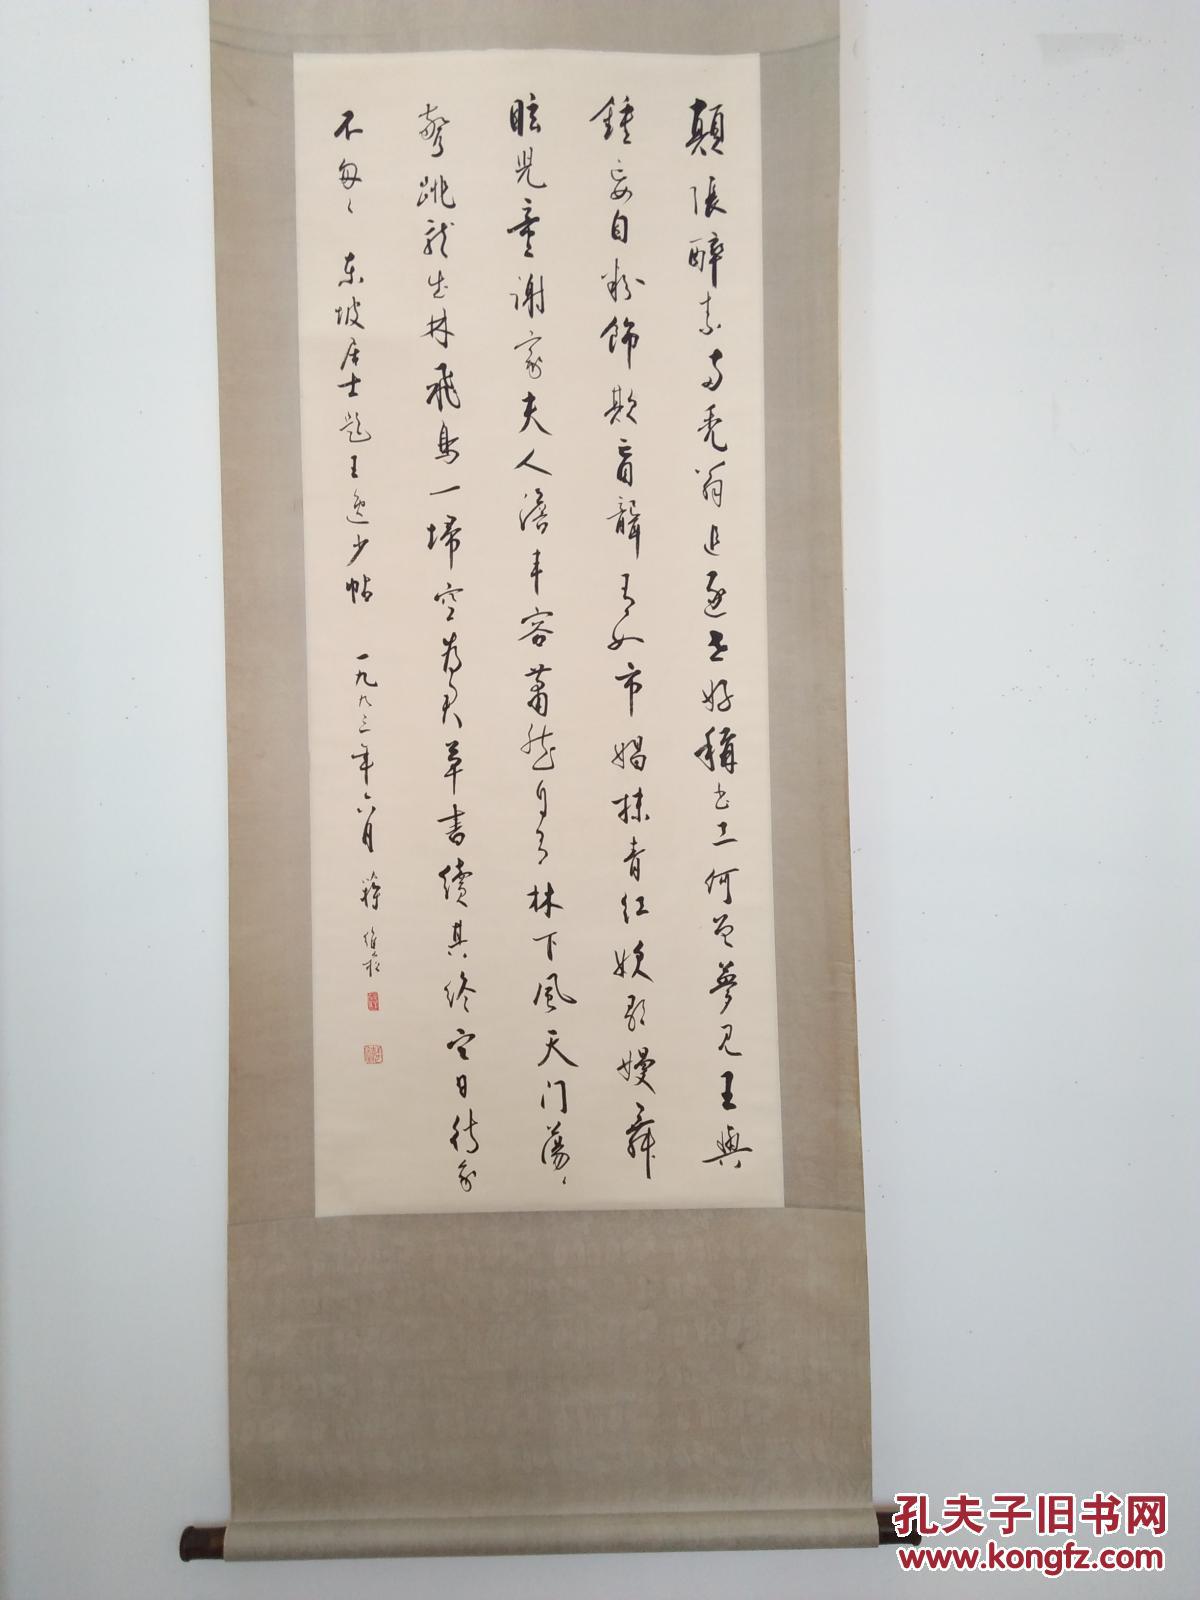 顛張醉素两秃翁追逐世好稱书工何曾夢見王與
鍾妄自粉飾欺盲聾有如市娼抹青红妖歌嫚舞
眩兒童謝家夫人澹丰容蕭然自有林下風天门蕩〻
驚跳龙出林飛鳥一埽空为君草書續其終它日待我
不匆〻 东坡居士题王逸少帖 一九九三年六月 蔣維崧
孔夫子旧书网
www.kongfz.com